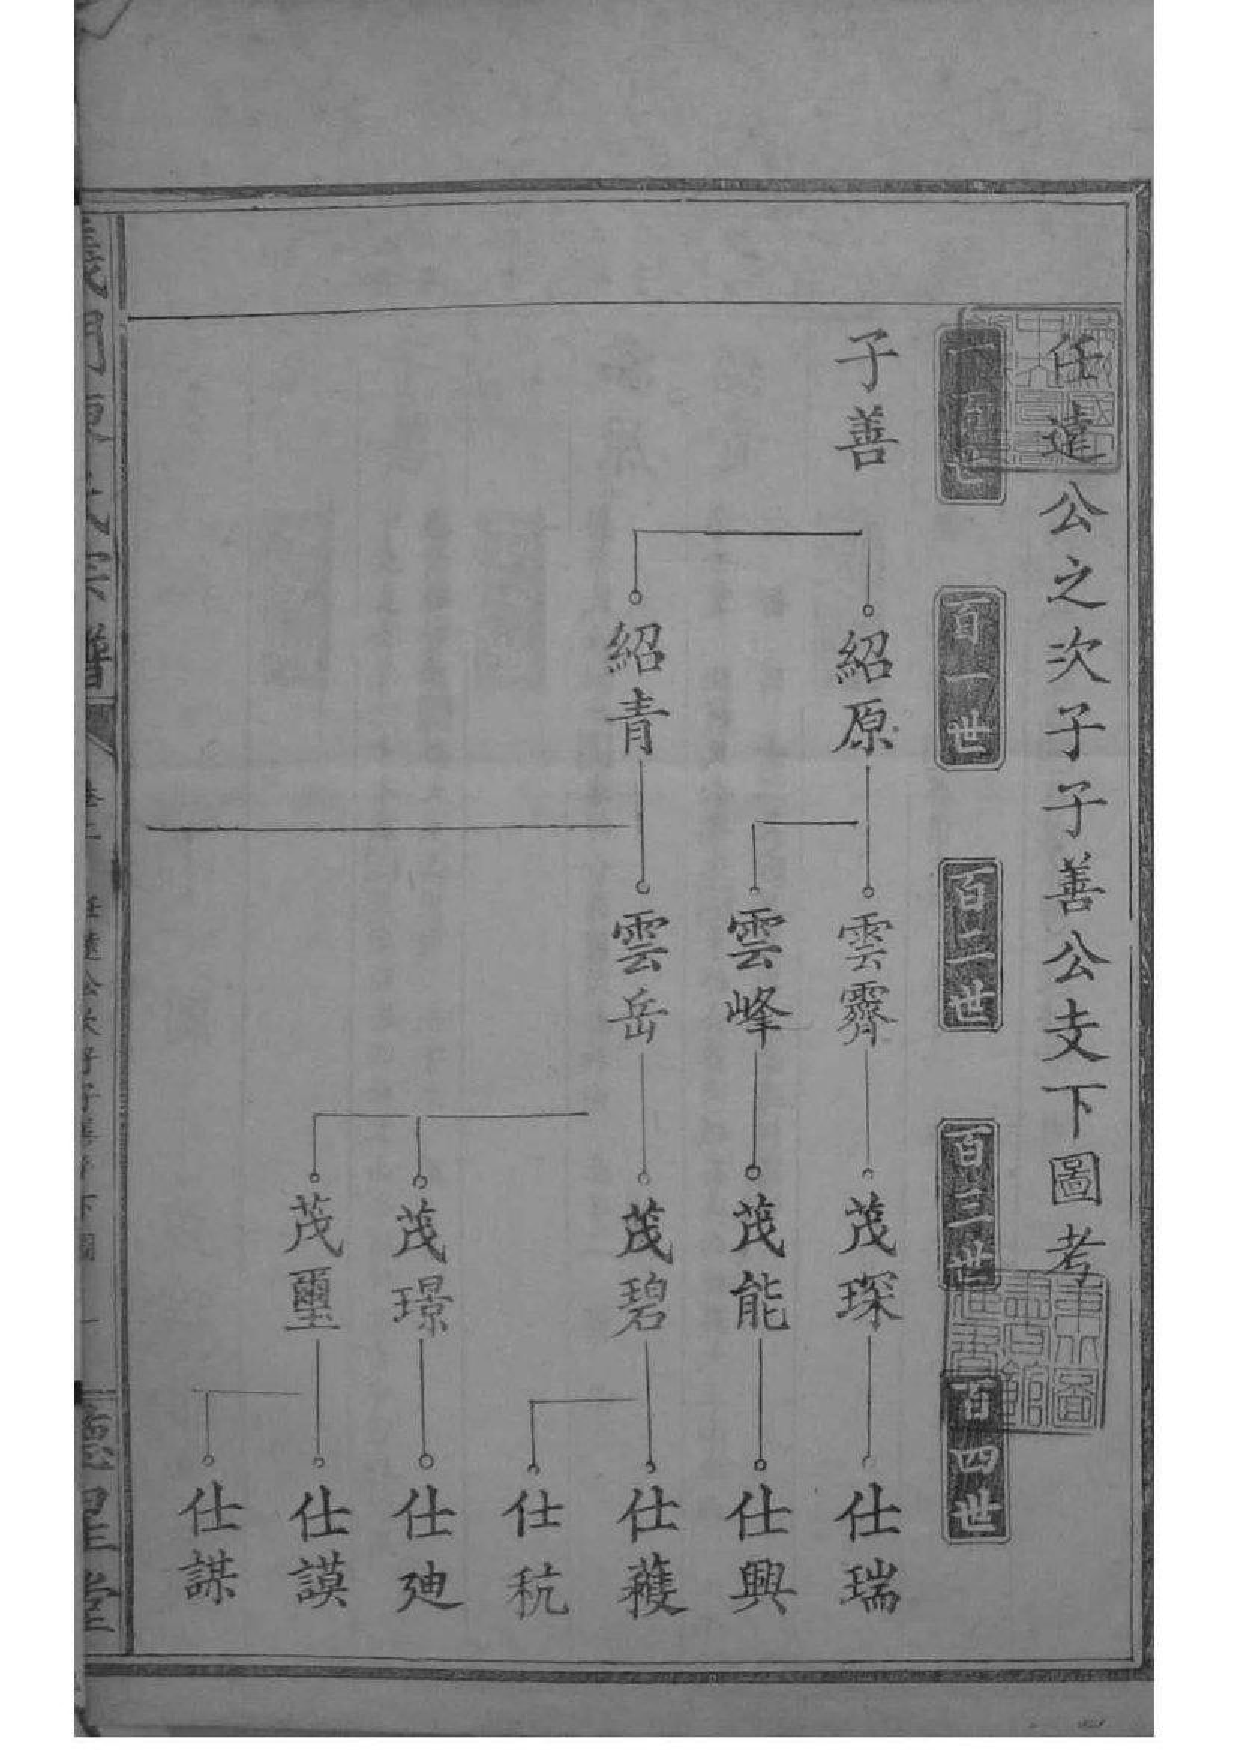 任遠公之次子子善公支下圖考
一百世
百一世
百二世
百三世
百四世
子善
紹原
紹青
雲霽
雲峰
雲岳
茂琛
茂能
茂碧
茂璟
茂璽
仕瑞
仕興
仕蘐
仕秔
仕廸
仕謨
仕謀
義門陳氏宗譜
任達公次子子善公支下圖
一
德星堂